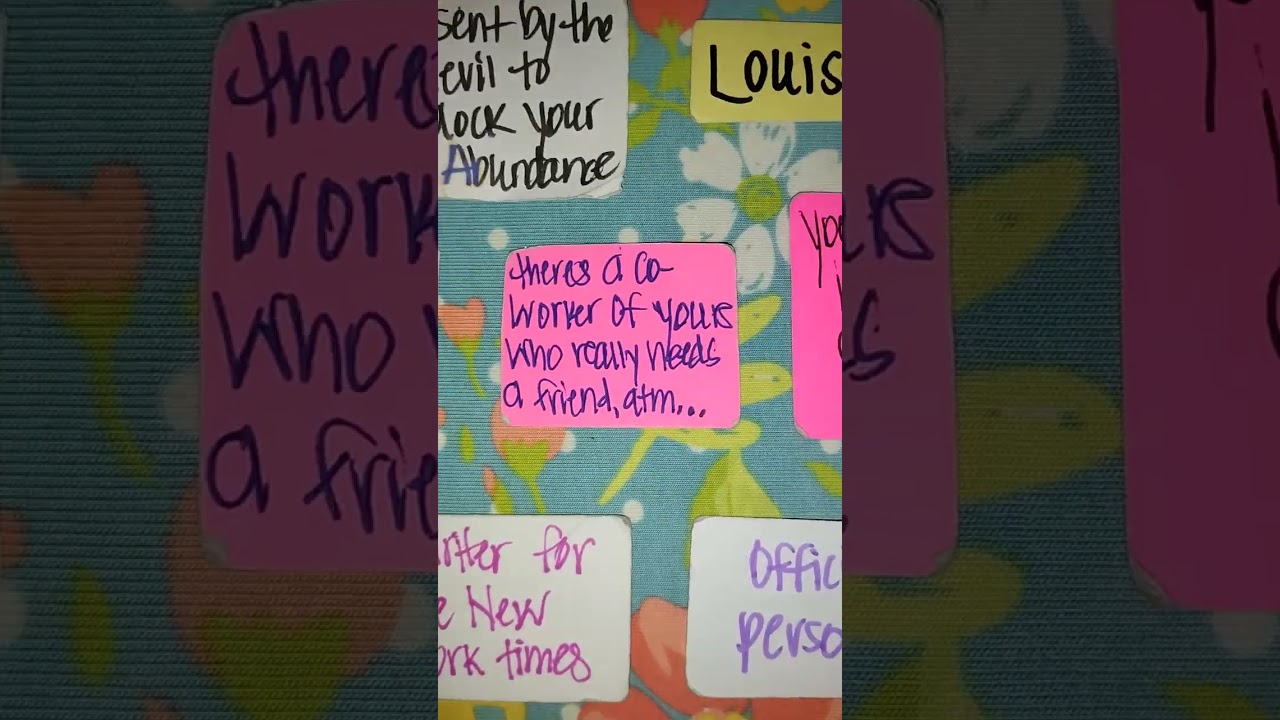 sent by the
evil to
lock your
Abundance
Louis
theres a co-
worker of yours
who really needs
a friend, atm...
you
riter for
e New
ork times
Offic
perso